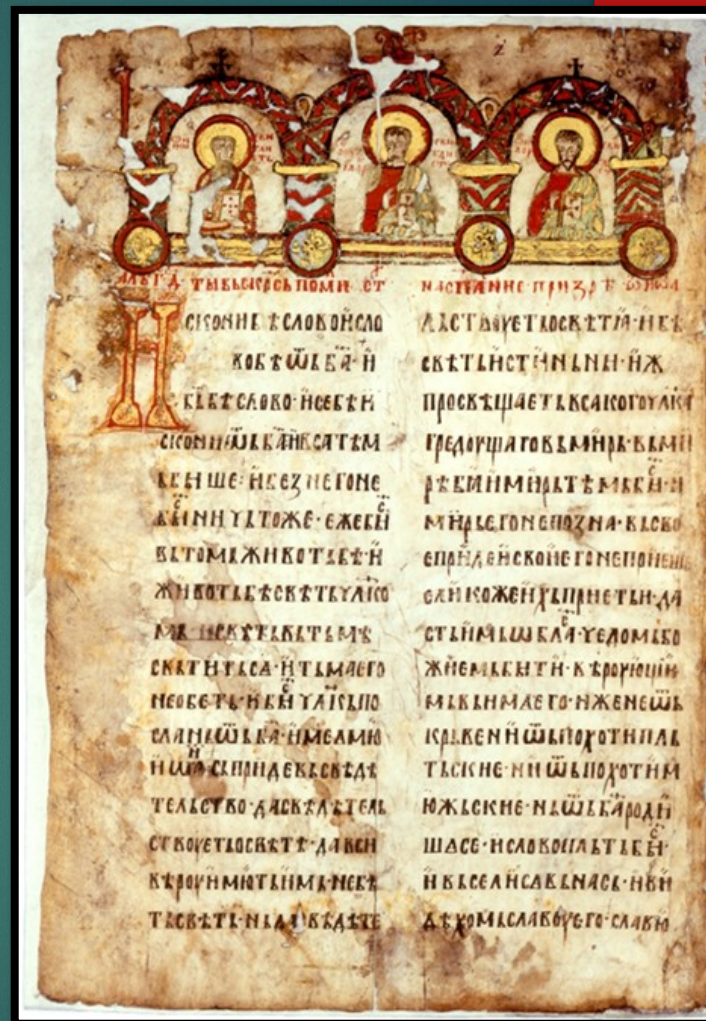 СКОНИБѢСЛОВОИСЛО
ВОБѢѾЬБА·И
БЬБѢСЛОВО·ИСЕБѢИ
СКОНИѾЬБАИВСАТѢМ
ЬБЫШЕ·ИБЕЗНЕГОНЕ
БЫНИЧЬТОЖЕ·ЕЖЕБЫ
ВЬТОМЬЖИВОТЬБѢ·И
ЖИВОТЬБѢСВѢТЬЧЛКО
МЬ·ИСВѢТЬВЬТЬМѢ
СВѢТИТЬСА·ИТЬМАЕГО
НЕОБЕТЬ·ИБЫЧЛКЬПО
СЛАНЬѾЬБА·ИМЕЛМЮ
ИѠАСЬПРИДЕВЬСВѢДѢ
ТЕЛЬСТВО·ДАСВѢДѢТЕЛЬ
СТВОУЕТЬОСВѢТѢ·ДАВСИ
ВѢРОУИМЮТЬИМЬ·НЕБѢ
ТЬСВѢТЬ·НЬДАСВѢДѢТЕ
ЛЬСТВОУЕТЬОСВѢТѢ·НБѢ
СВѢТЬИСТИНЬНЫ·ИЖ
ПРОСВѢЩАЕТЬВСАКОГОЧЛКА
ГРЕДОУЩАГОВЬМИРЬ·ВЬМИ
РѢБѢИМИРЬТѢМЬБЫ·И
МИРЬЕГОНЕПОЗНА·ВЬСВО
ЕПРИДЕИСВОИЕГОНЕПОНЕШЕ
ЕЛИКОЖЕИХЬПРИЕТЬИ·ДА
СТЬИМЬѠБЛА·ЧЕДОМЬБО
ЖИЕМЬБЫТИ·ВѢРОУЮЩИИ
МЬВЬИМАЕГО·ИЖЕНЕѾЬ
КРЬВЕНИѾЬПОХОТИПЛЬ
ТЬСКИЕ·НИѾЬПОХОТИМ
ЮЖЬСКИЕ·НЬѾЬБАРОДИ
ШАСЕ·ИСЛОВОПЛЬТЬБЫ·
ИВЬСЕЛИСАВЬНАСЬ·ИВИ
ДѢХОМЬСЛАВОУЕГО·СЛАВЮ